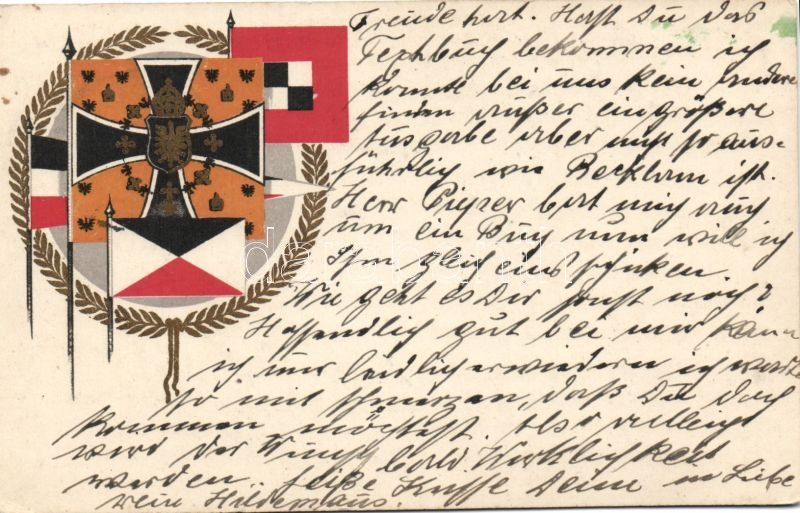 Freude hat. Hast Du das
Textbuch bekommen ich
konnte bei uns kein andere
finden außer ein größere
Ausgabe aber nicht so aus-
führlich wie Recklam ist.
Herr bat mich auch
um ein Buch nun will ich
Ihm gleich eins schicken
Wie geht es Dir sonst noch?
Hoffendlich gut bei mir kann
ich nur leidlich erwiedern ich warte
so mit schmerzen, daß Du doch
kommen möchtest. Also vielleicht
wird der Wunsch bald Wirklichkeit
werden. Heiße Küsse Deine in Liebe